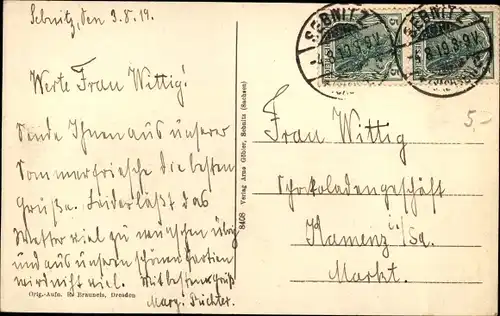 Sebnitz, den 3.8.19.
Werte Frau Wittig!
Sende Ihnen aus unserer
Sommerfrische die besten
Grüße. Leider läßt das
Wetter viel zu wünschen übrig
und aus unseren schönen Partien
wird nicht viel. Mit besten Gruß
Marg. Richter.
Orig.-Aufn. R. Brauneis, Dresden
8408 Verlag Arno Göbler, Sebnitz (Sachsen)
SEBNITZ
SEBNITZ
5
5
5
5.-
Frau Wittig
Schokoladengeschäft
Kamenz i/Sa.
Markt.